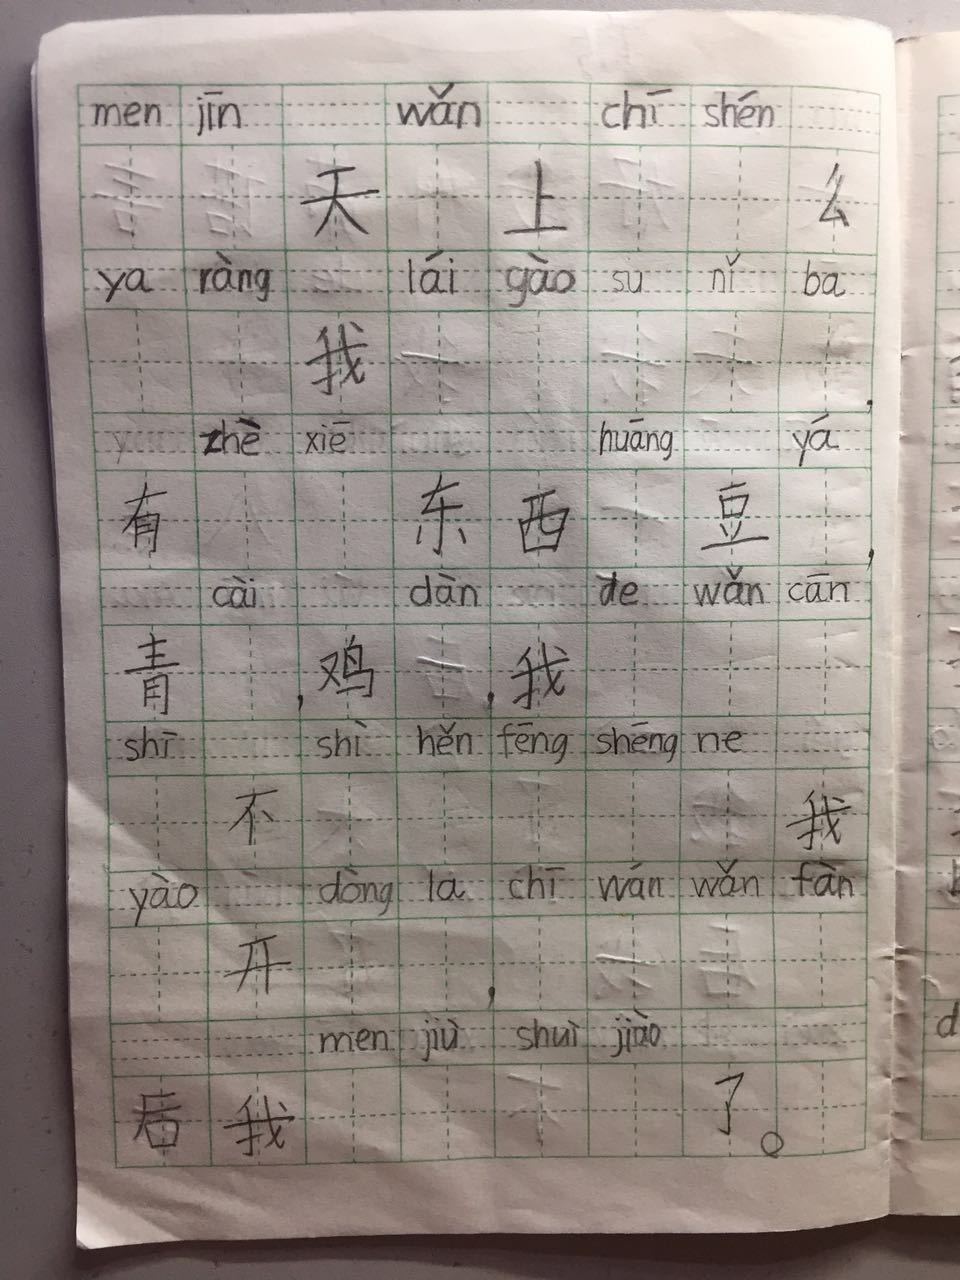 men jīn wǎn chī shén
天 上 么
ya ràng lái gào su nǐ ba
我 ,
zhè xiē huāng yá
有 东 西 豆 ,
cài dàn de wǎn cān
青 , 鸡 , 我
shī shì hěn fēng shēng ne
不 我
yào dòng la chī wán wǎn fàn
开 ,
men jiù shuì jiào
后 我 了 。